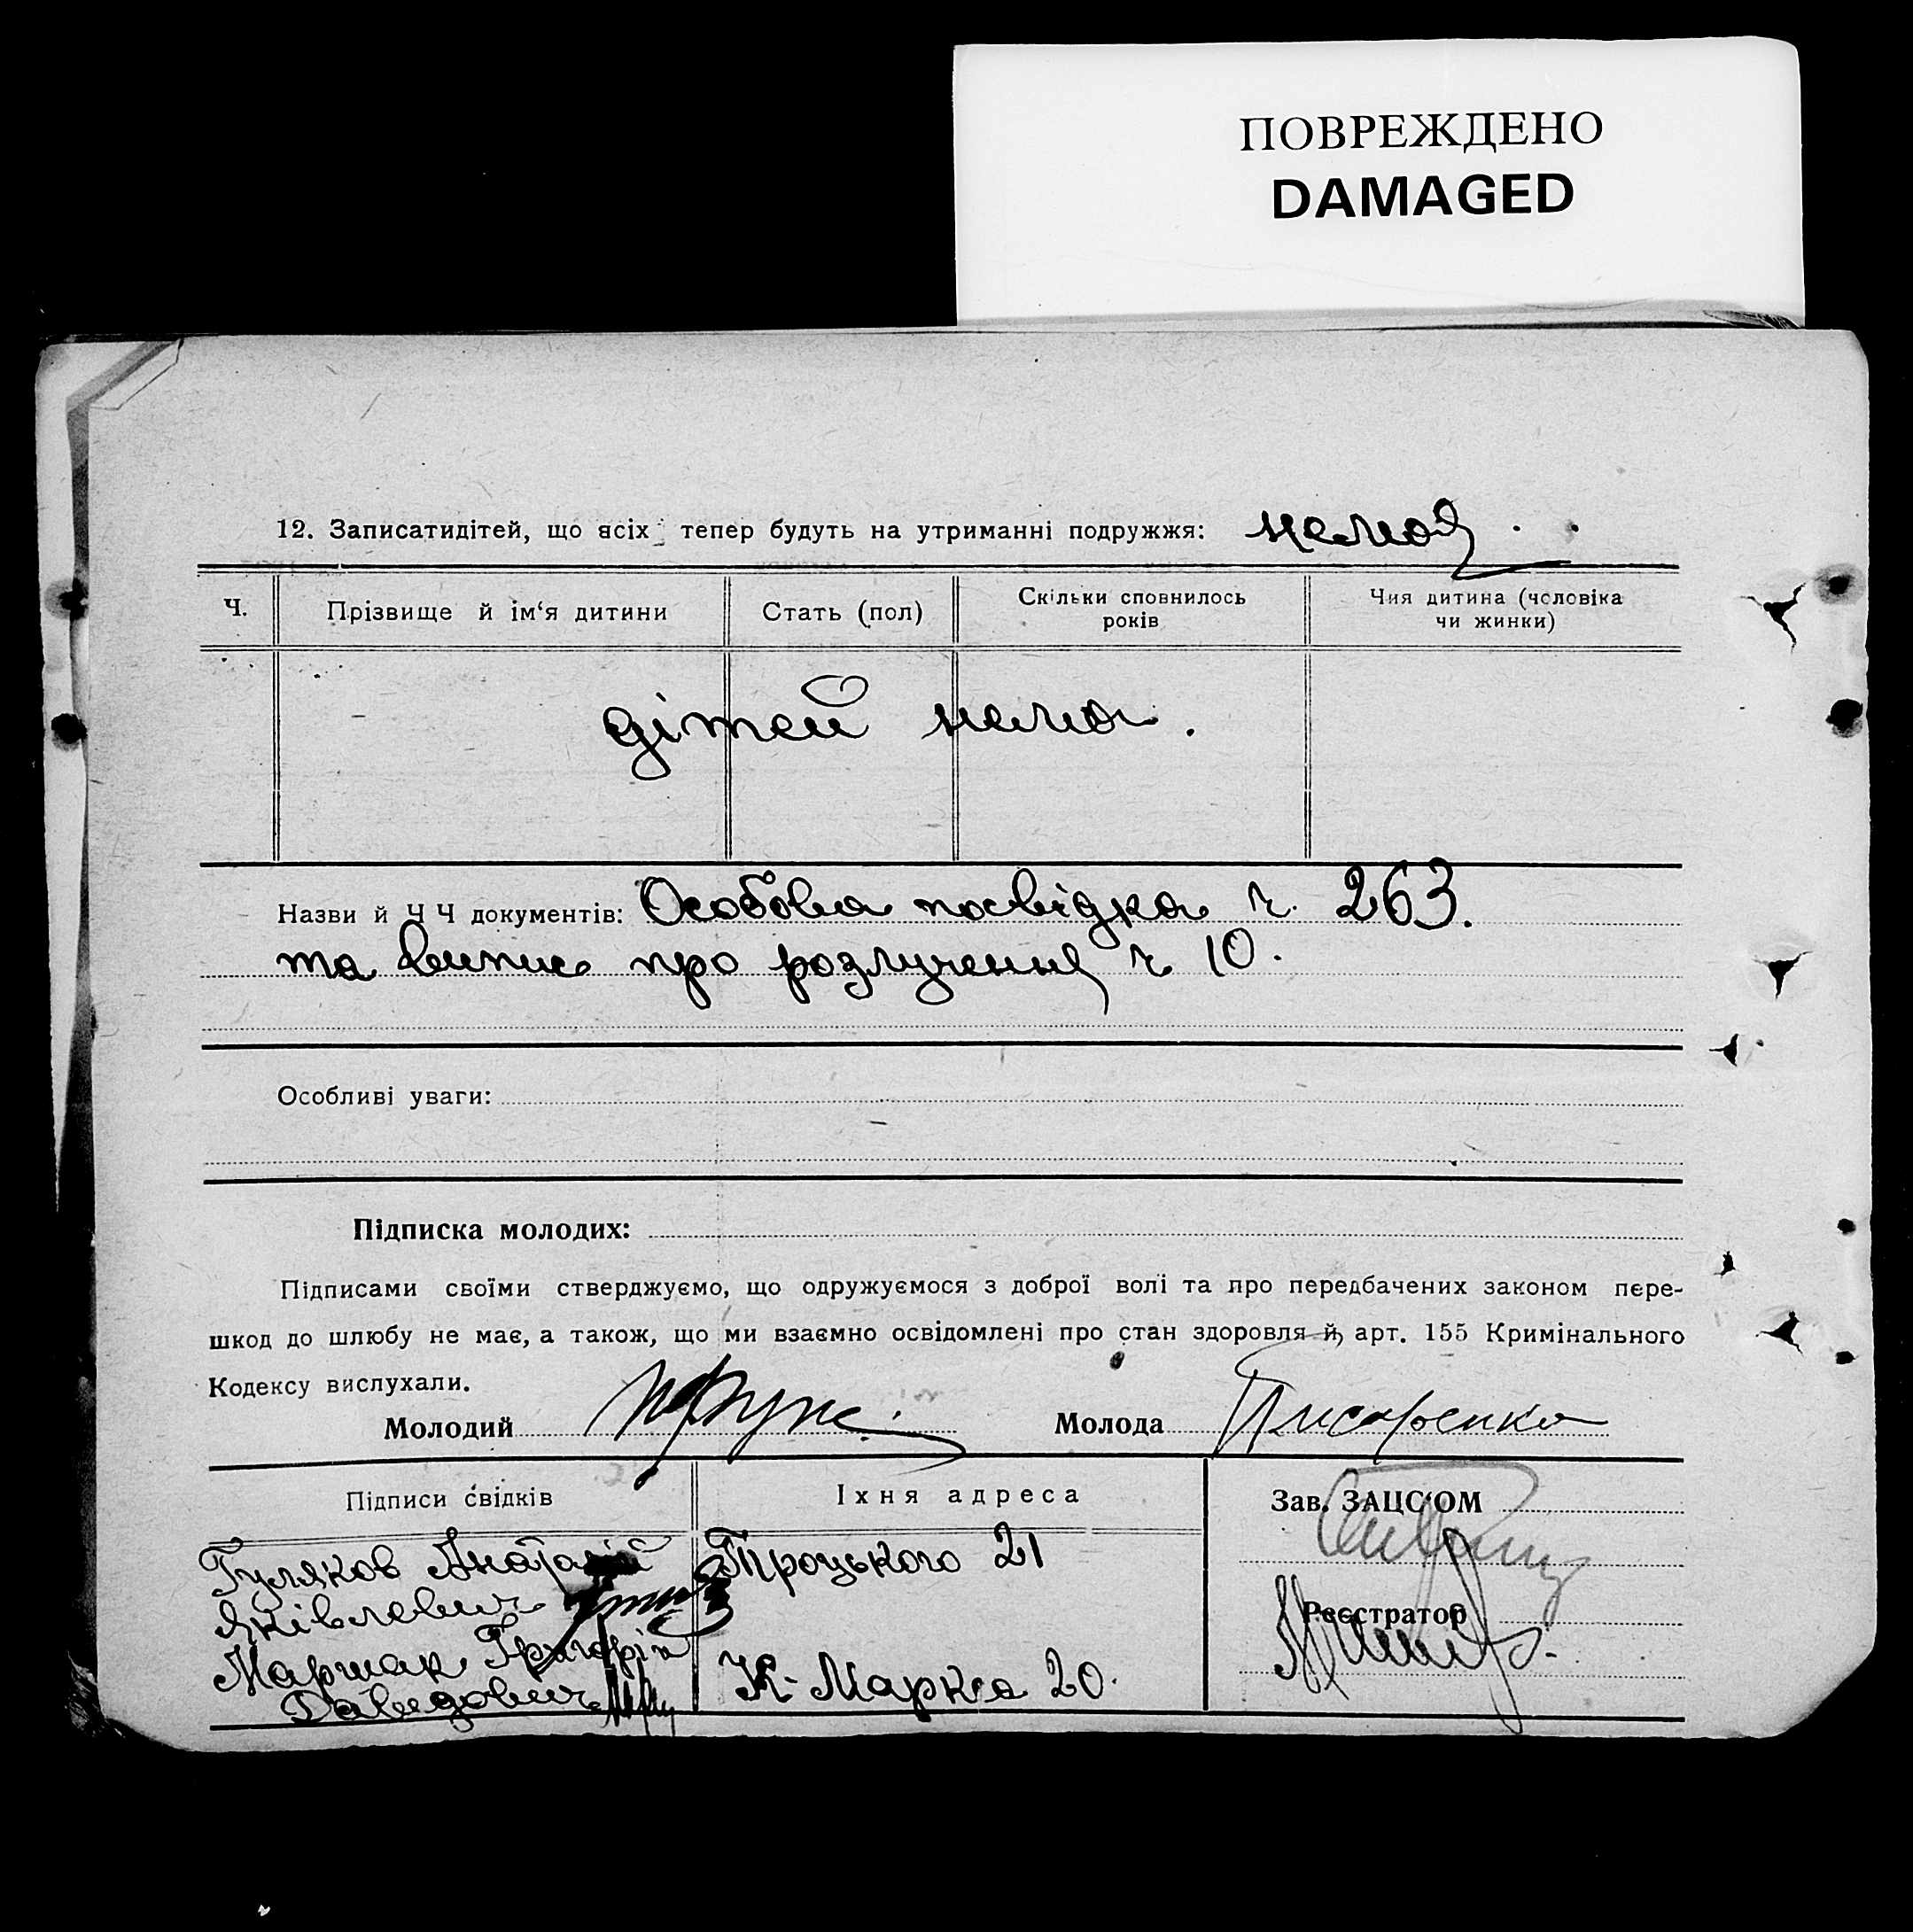 ПОВРЕЖДЕНО
DAMAGED
12. Записатидітей, що всіх тепер будуть на утриманні подружжя: немає
Ч. Прізвище й ім‘я дитини Стать (пол) Скільки сповнилось років Чия дитина (чоловіка чи жинки)
дітей нема.
Назви й Ч Ч документів: Особова посвідка ч. 263.
та випис про розлучення ч 10.
Особливі уваги:
Підписка молодих:
Підписами своїми стверджуємо, що одружуємося з доброї волі та про передбачених законом пере-
шкод до шлюбу не має, а також, що ми взаємно освідомлені про стан здоровля й, арт. 155 Кримінального
Кодексу вислухали.
Молодий Молода Писаренко
Підписи свідків Їхня адреса Зав. ЗАЦС‘ОМ
Гуляков Анаталій Троцького 21
Яківлевич
Реєстратор
Маршак Григорій К-Маркса 20.
Давидович